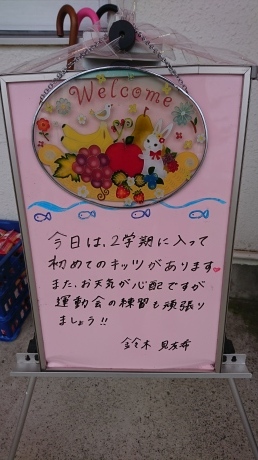 Welcome
今日は、2学期に入って
初めてのキッツがあります♥
また、お天気が心配ですが
運動会の練習も頑張り
ましょう!!
鈴木 見友希